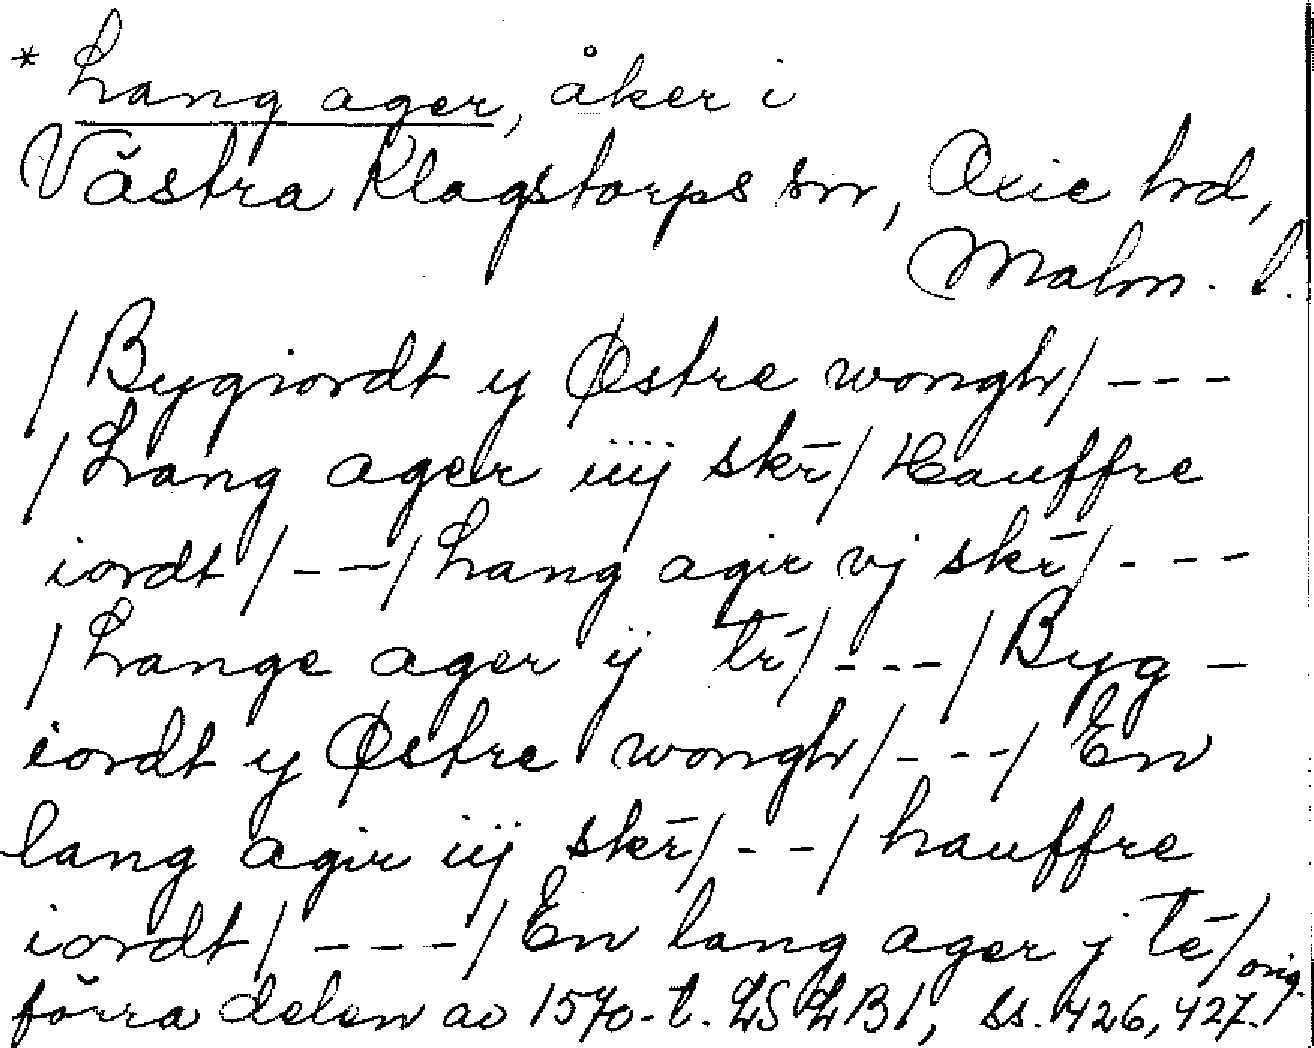 * Lang ager, åker i
Västra Klagstorps sn, Oxie hd,
Malm. l.
/Bygiordt y Østre wongh/ ---
/Lang ager iiij skr̄/ Hauffre
iordt/ ---/Lang agir vj skr̄/ ---
/Lange ager ij tr̄/ ---/Byg-
iordt y Østre wongh/ ---/ En
lang agir iij skr̄/ ---/ hauffre
iordt/ ---/ En lang ager j tē/ orig.
förra delen av 1570-t. LSLB1, ss. 426, 427./